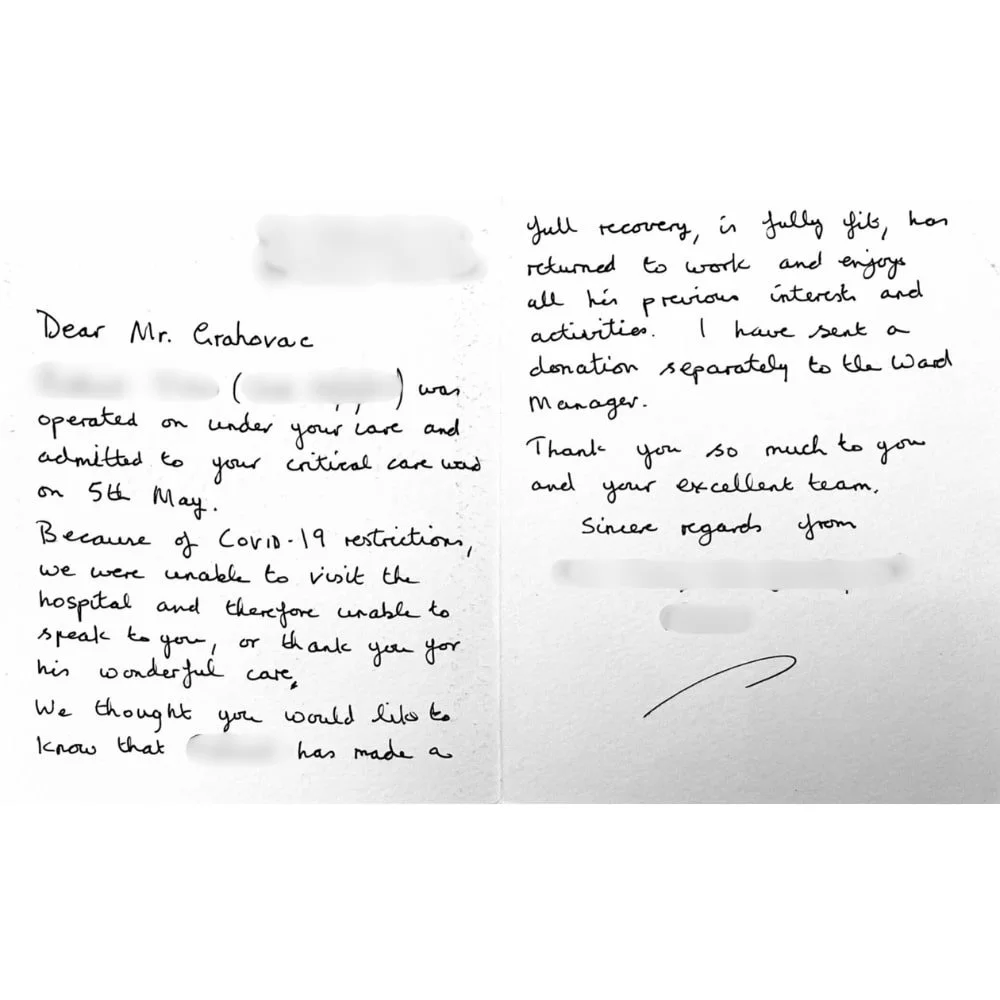 Dear Mr. Grahovac
( ) was
operated on under your care and
admitted to your critical care ward
on 5th May.
Because of COVID-19 restrictions,
we were unable to visit the
hospital and therefore unable to
speak to you, or thank you for
his wonderful care.
We thought you would like to
know that has made a
full recovery, is fully fit, has
returned to work and enjoys
all his previous interests and
activities. I have sent a
donation separately to the Ward
Manager.
Thank you so much to you
and your excellent team.
Sincere regards from